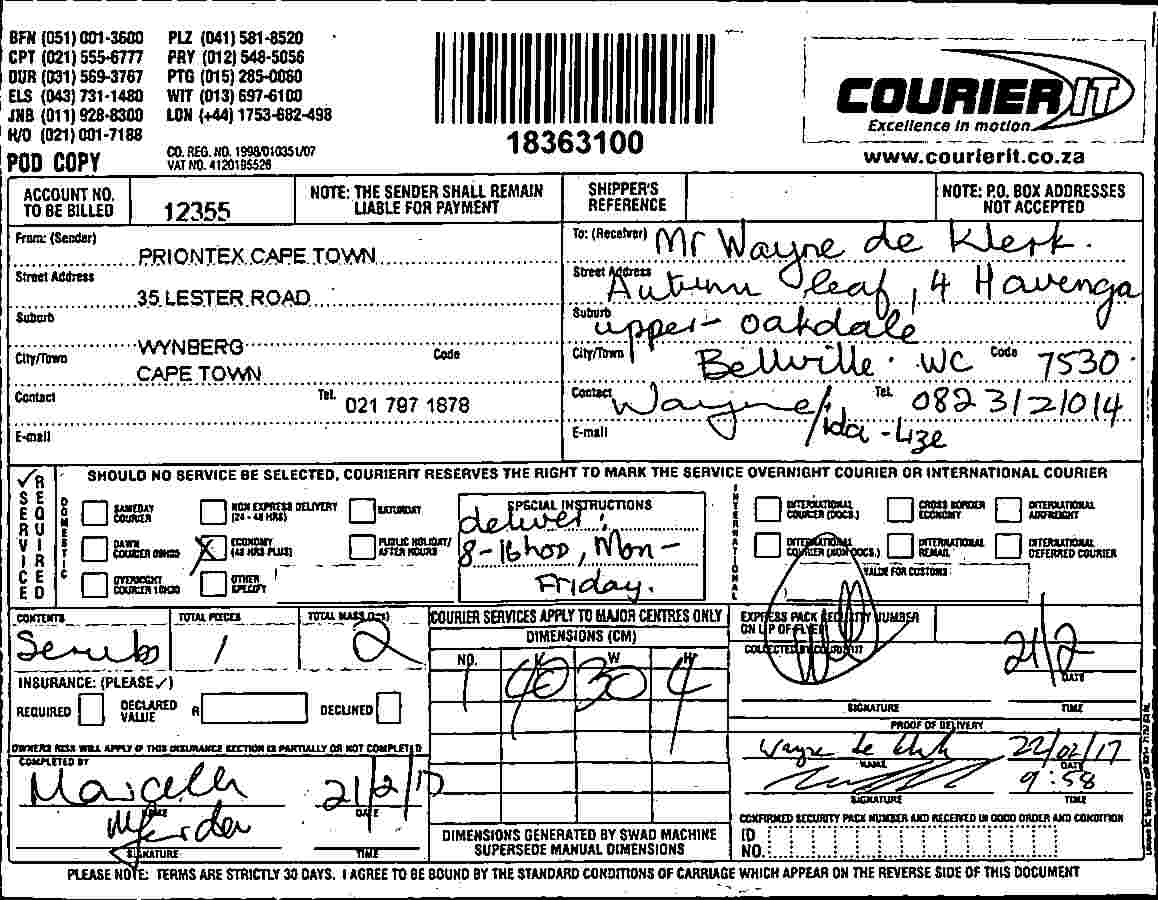 BFN (051) 001-3600 PLZ (041) 581-8520
CPT (021) 555-6777 PRY (012) 548-5056
DUR (031) 569-3767 PTG (015) 285-0060
ELS (043) 731-1480 WIT (013) 697-6100
JNB (011) 928-8300 LON (+44) 1753-682-498
H/O (021) 001-7188
POD COPY
CO. REG. NO. 1998/010351/07
VAT NO. 4120185526
18363100
COURIER IT
Excellence in motion
www.courierit.co.za
ACCOUNT NO. TO BE BILLED 12355
NOTE: THE SENDER SHALL REMAIN LIABLE FOR PAYMENT
SHIPPER'S REFERENCE
NOTE: P.O. BOX ADDRESSES NOT ACCEPTED
From: (Sender) PRIONTEX CAPE TOWN
Street Address 35 LESTER ROAD
Suburb WYNBERG
City/Town CAPE TOWN Code
Contact Tel. 021 797 1878
E-mail
To: (Receiver) Mr Wayne de Klerk.
Street Address Autumn leaf, 4 Havenga
Suburb upper-oakdale
City/Town Bellville. WC Code 7530
Contact Wayne/Ida-Lize Tel. 082 3121014
E-mail
SERVICE REQUIRED
SHOULD NO SERVICE BE SELECTED, COURIERIT RESERVES THE RIGHT TO MARK THE SERVICE OVERNIGHT COURIER OR INTERNATIONAL COURIER
DOMESTIC
SAMEDAY COURIER
NON EXPRESS DELIVERY (24 - 48 HRS)
SATURDAY
DAWN COURIER 09H00
X ECONOMY (48 HRS PLUS)
PUBLIC HOLIDAY/ AFTER HOURS
OVERNIGHT COURIER 10H30
OTHER SPECIFY
SPECIAL INSTRUCTIONS
deliver:
8-16h00, Mon-
Friday.
INTERNATIONAL
INTERNATIONAL COURIER (DOCS.)
CROSS BORDER ECONOMY
INTERNATIONAL AIRFREIGHT
INTERNATIONAL COURIER (NON DOCS.)
INTERNATIONAL REMAIL
INTERNATIONAL DEFERRED COURIER
VALUE FOR CUSTOMS
CONTENTS Scrubs
TOTAL PIECES 1
TOTAL MASS (KG) 2
INSURANCE: (PLEASE ✓)
REQUIRED DECLARED VALUE R DECLINED
OWNERS RISK WILL APPLY IF THIS INSURANCE SECTION IS PARTIALLY OR NOT COMPLETED
COMPLETED BY
Marcelle 21/2/17
DATE
SIGNATURE TIME
COURIER SERVICES APPLY TO MAJOR CENTRES ONLY
DIMENSIONS (CM)
NO. L W H
1 40 30 4
DIMENSIONS GENERATED BY SWAD MACHINE
SUPERSEDE MANUAL DIMENSIONS
EXPRESS PACK SECURITY NUMBER
ON LIP OF FLYER
COLLECTED BY COURIERIT
21/2
DATE
SIGNATURE TIME
PROOF OF DELIVERY
Wayne de Klerk 22/02/17
NAME DATE
9:58
SIGNATURE TIME
CONFIRMED SECURITY PACK NUMBER AND RECEIVED IN GOOD ORDER AND CONDITION
ID NO.
PLEASE NOTE: TERMS ARE STRICTLY 30 DAYS. I AGREE TO BE BOUND BY THE STANDARD CONDITIONS OF CARRIAGE WHICH APPEAR ON THE REVERSE SIDE OF THIS DOCUMENT